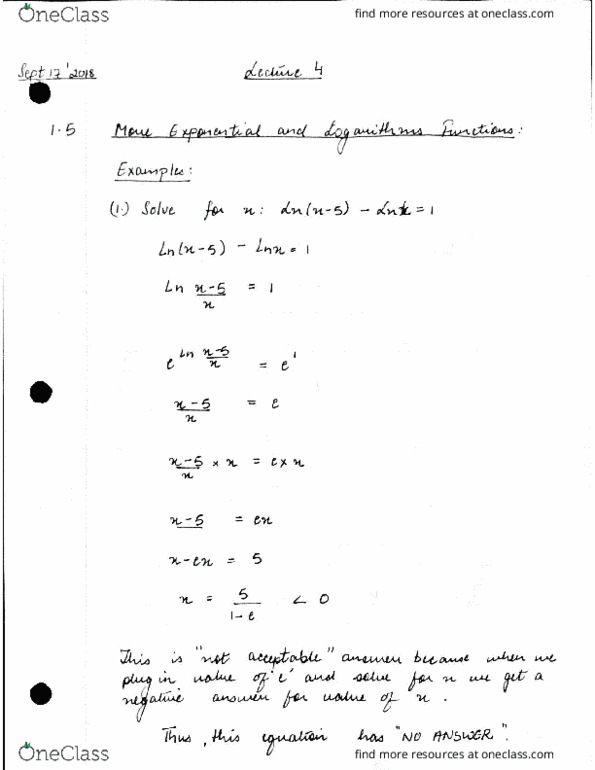 OneClass
find more resources at oneclass.com
Sept 17' 2018
Lecture 4
1.5 More Exponential and Logarithms Functions:
Examples:
(1.) Solve for x: Ln(x-5) - Lnx = 1
Ln(x-5) - Lnx = 1
Ln (x-5)/x = 1
e^(Ln (x-5)/x) = e^1
(x-5)/x = e
(x-5)/x × x = e × x
x-5 = ex
x-ex = 5
x = 5/(1-e) < 0
This is "not acceptable" answer because when we
plug in value of 'e' and solve for x we get a
negative answer for value of x.
Thus, this equation has "NO ANSWER".
OneClass
find more resources at oneclass.com